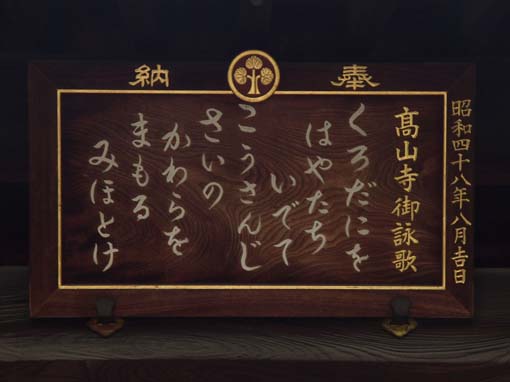 奉納
昭和四十八年八月吉日
髙山寺御詠歌
くろだにを
はやたち
いでて
こうさんじ
さいの
かわらを
まもる
みほとけ